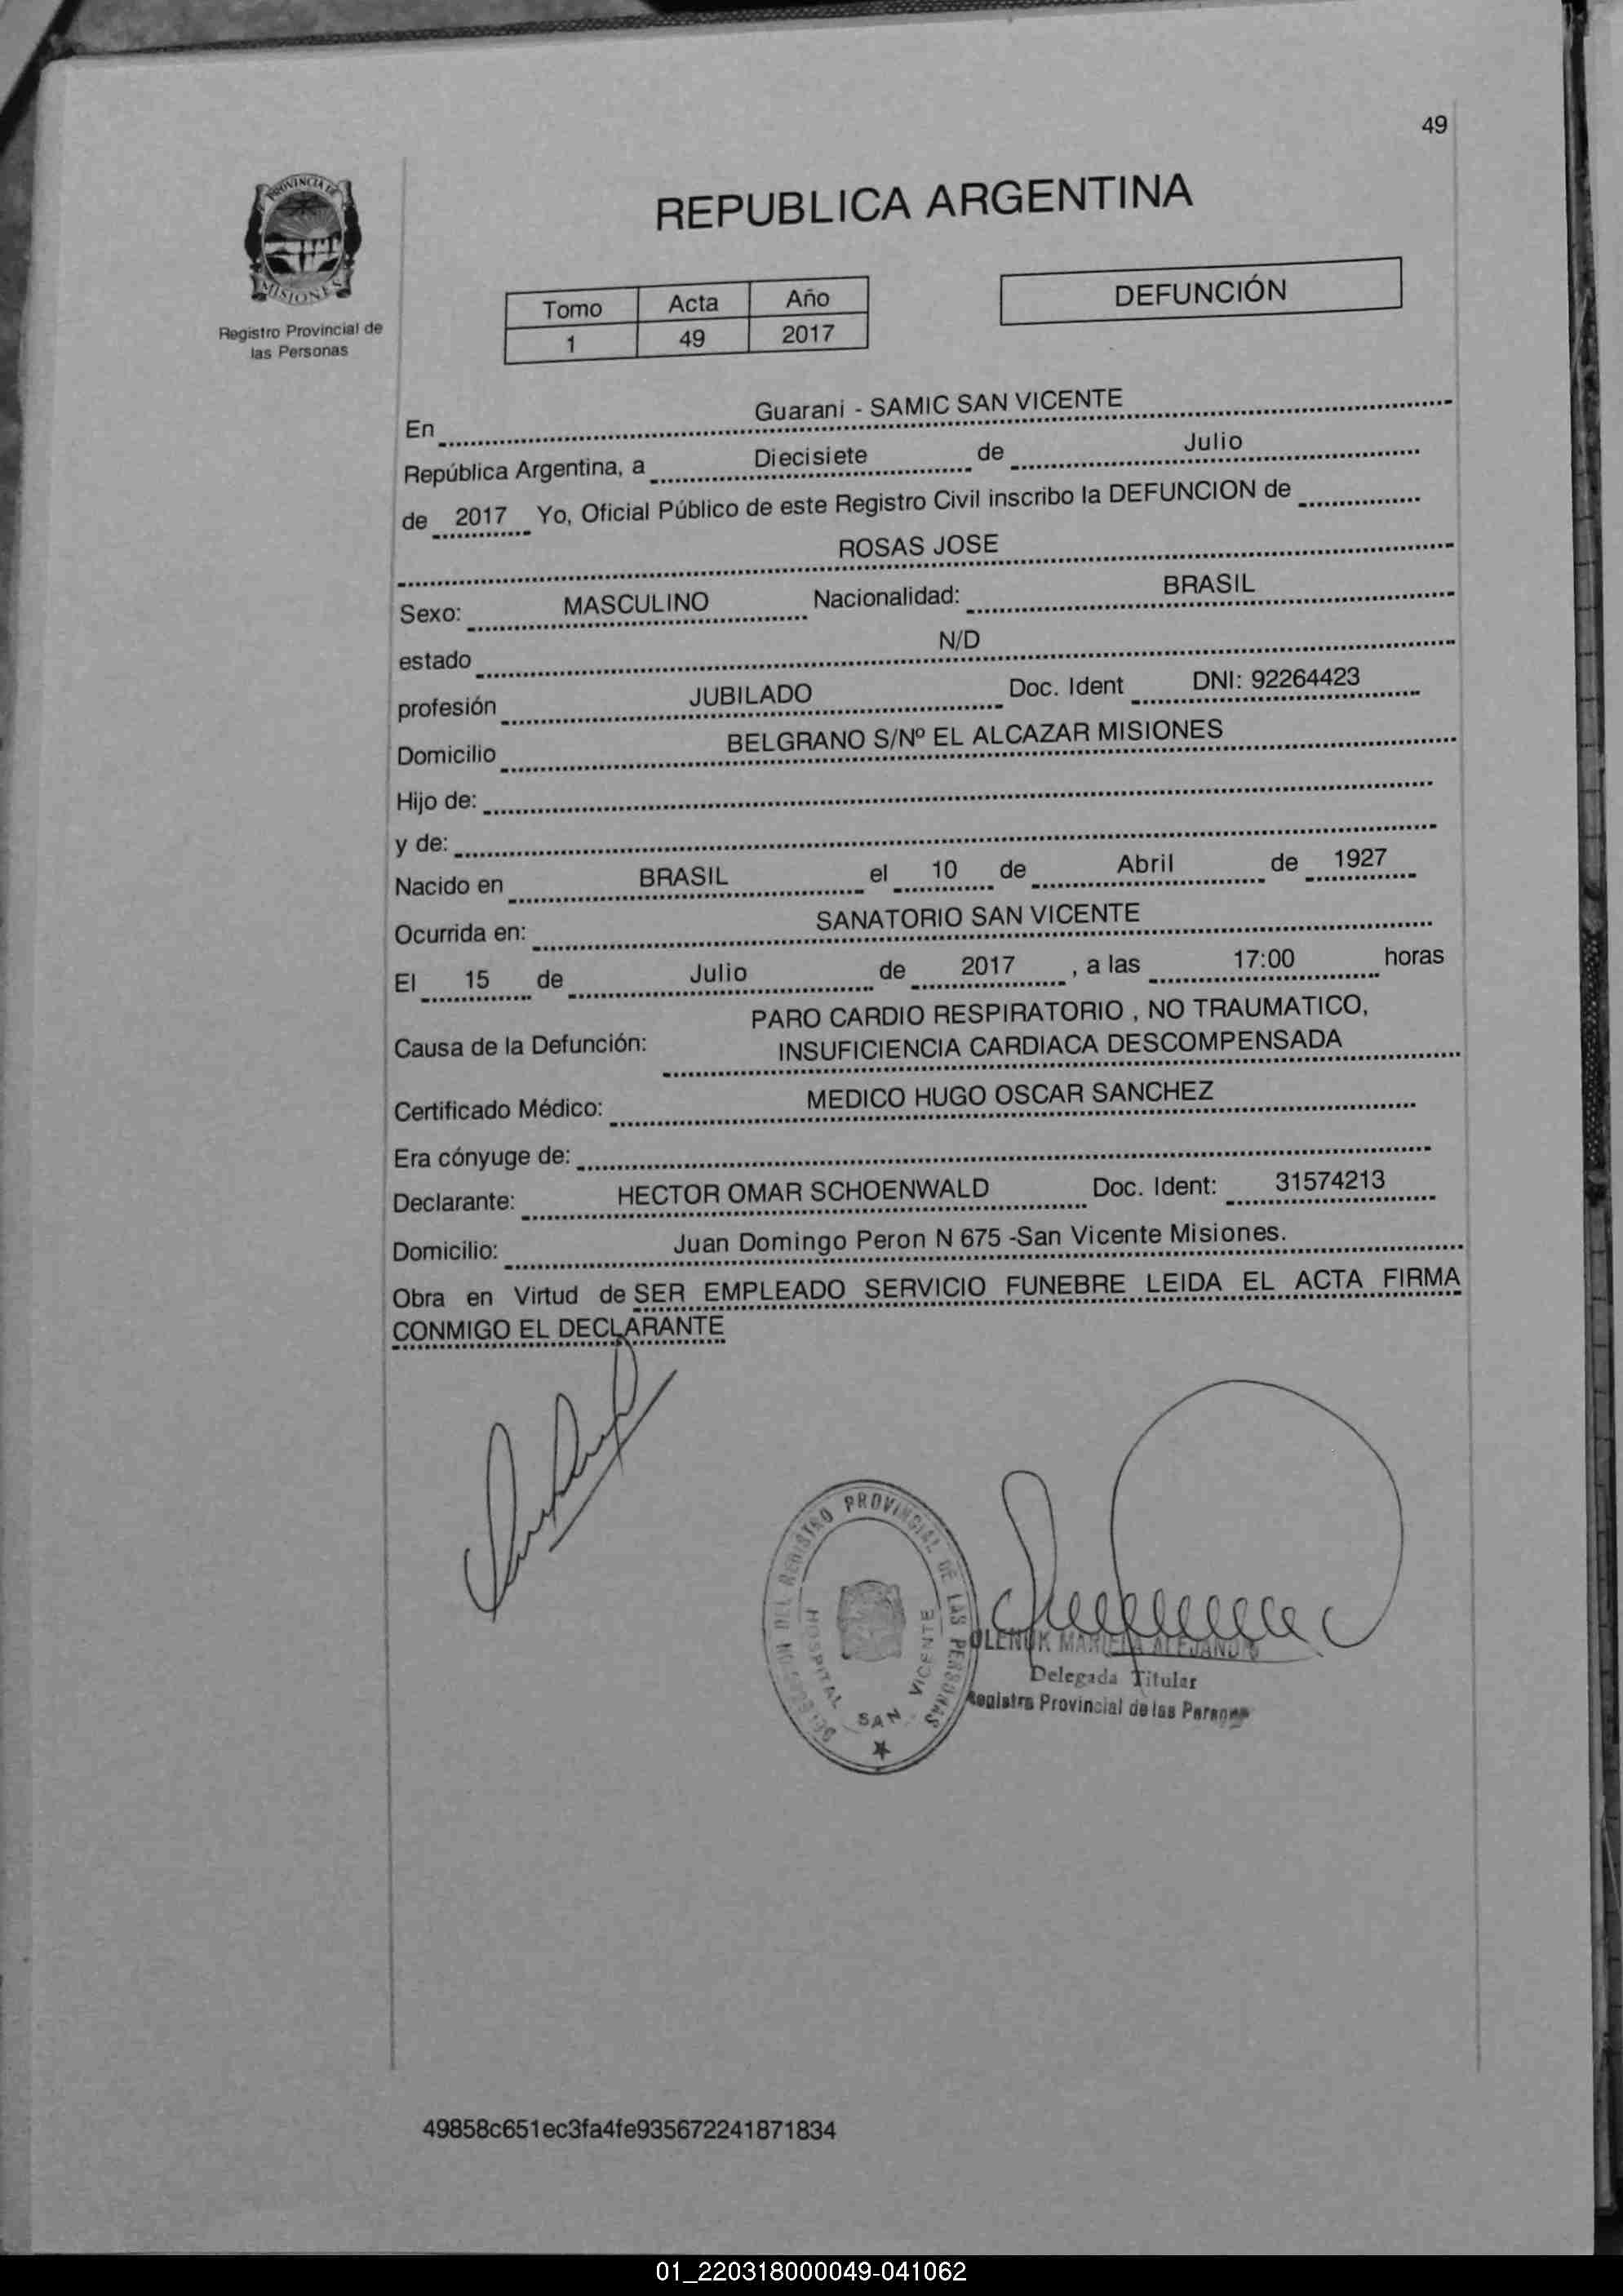 49
PROVINCIA DE
MISIONES
Registro Provincial de
las Personas
REPUBLICA ARGENTINA
Tomo Acta Año
1 49 2017
DEFUNCIÓN
En Guarani - SAMIC SAN VICENTE
República Argentina, a Diecisiete de Julio
de 2017 Yo, Oficial Público de este Registro Civil inscribo la DEFUNCION de
ROSAS JOSE
Sexo: MASCULINO Nacionalidad: BRASIL
estado N/D
profesión JUBILADO Doc. Ident DNI: 92264423
Domicilio BELGRANO S/Nº EL ALCAZAR MISIONES
Hijo de:
y de:
Nacido en BRASIL el 10 de Abril de 1927
Ocurrida en: SANATORIO SAN VICENTE
El 15 de Julio de 2017 , a las 17:00 horas
PARO CARDIO RESPIRATORIO , NO TRAUMATICO,
Causa de la Defunción: INSUFICIENCIA CARDIACA DESCOMPENSADA
Certificado Médico: MEDICO HUGO OSCAR SANCHEZ
Era cónyuge de:
Declarante: HECTOR OMAR SCHOENWALD Doc. Ident: 31574213
Domicilio: Juan Domingo Peron N 675 -San Vicente Misiones.
Obra en Virtud de SER EMPLEADO SERVICIO FUNEBRE LEIDA EL ACTA FIRMA
CONMIGO EL DECLARANTE
DEL REGISTRO PROVINCIAL DE LAS PERSONAS
HOSPITAL SAN VICENTE
OLENUK MARIELA
Delegada Titular
Registro Provincial de las Personas
49858c651ec3fa4fe935672241871834
01_220318000049-041062